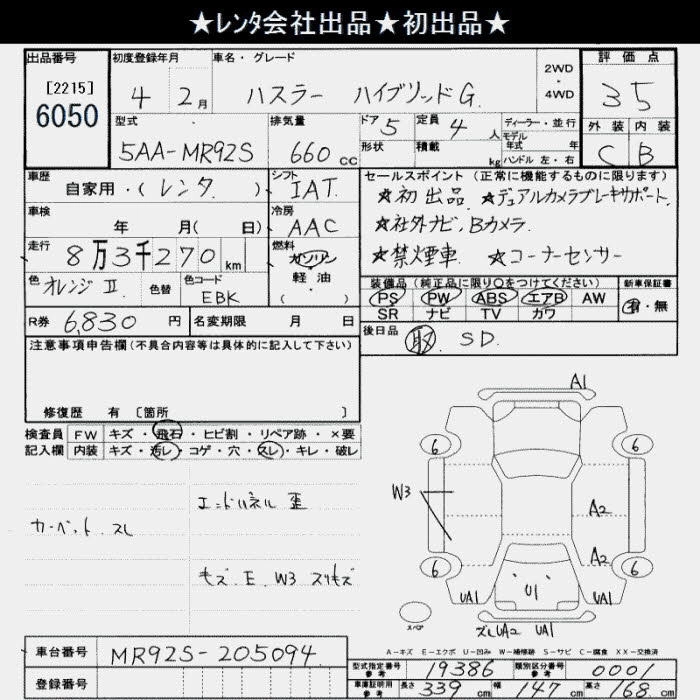 ★レンタ会社出品★初出品★
出品番号 初度登録年月 車名・グレード 2WD・4WD 評価点
[2215]
6050
4年 2月 ハスラー ハイブリッドG. 35
型式 排気量 ドア 定員 ディーラー・並行 外装 内装
5AA-MR92S 660cc 5 4人 モデル年式 年 C B
形状 積載 kg ハンドル 左・右
車歴 自家用・(レンタ) シフト IAT セールスポイント(正常に機能するものに限ります)
★初出品 ★デュアルカメラブレーキサポート
車検 年 月(日) 冷房 AAC ★社外ナビ、Bカメラ
走行 8万3千270km 燃料 ガソリン 軽油 ( ) ★禁煙車 ★コーナーセンサー
色 オレンジⅡ 色替 色コード EBK
装備品(純正品に限り○をつけてください) 新車保証書
PS PW ABS エアB AW 有・無
SR ナビ TV カワ
R券 6,830円 名変期限 月 日
後日品 取 SD.
注意事項申告欄(不具合内容等は具体的に記入して下さい)
修復歴 有 [箇所 ]
検査員 FW キズ・飛石・ヒビ割・リペア跡・×要
記入欄 内装 キズ・汚レ・コゲ・穴・スレ・キレ・破レ
エンドパネル 歪
カーペット スレ
キズ. E. W3 スリキズ
A1
6 6
W3
A2
A2
6 6
UA1 U1 UA1
スペア
UA2 UA1
A-キズ E-エクボ U-凹み W-補修跡 S-サビ C-腐食 XX-交換済
車台番号 MR92S-205094
登録番号
型式指定番号 参考 19386 類別区分番号 参考 0001
車庫証明用 参考 長さ 339cm 幅 147cm 高さ 168cm